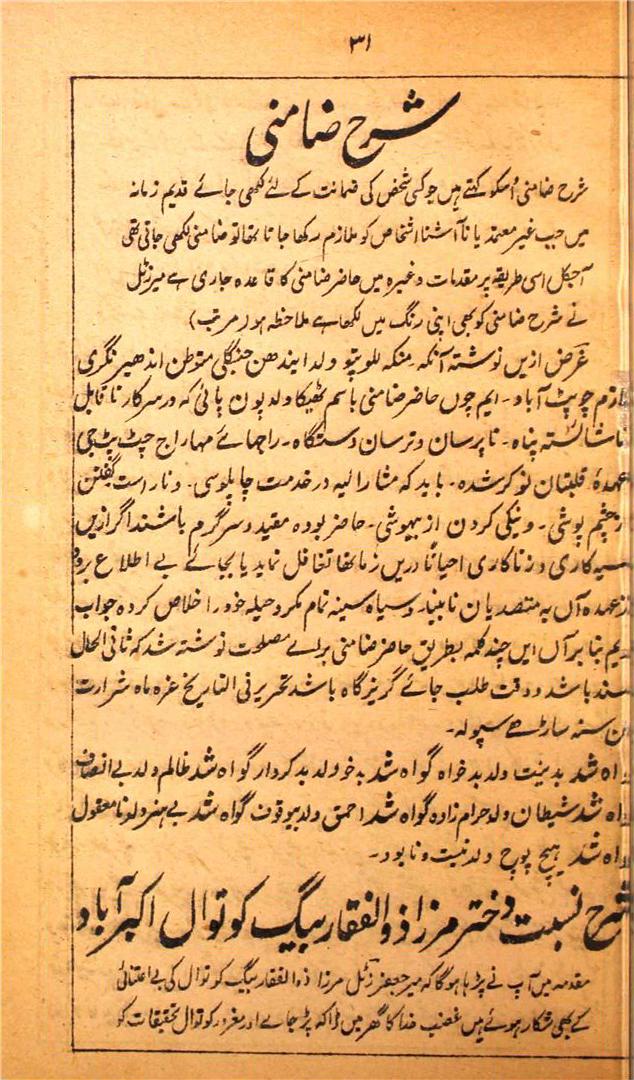 ۳۱
شرح ضامنی
شرح ضامنی اُسکو کہتے ہیں جو کسی شخص کی ضمانت کے لئے لکھی جائے قدیم زمانہ
میں جب غیر معتمد یا نا آشنا اشخاص کو ملازم رکھا جاتا تھا تو ضامنی لکھی جاتی تھی
آجکل اسی طریقہ پر مقدمات وغیرہ میں حاضر ضامنی کا قاعدہ جاری ہے میرزٹل
نے شرح ضامنی کو بھی اپنی رنگ میں لکھا ہے ملاحظہ ہو از مرتب)
غرض ازیں نوشتہ آنکہ۔ منکہ للو پتو ولد ایندھن جنگلی متوطن اندھیر نگری
ملازم چوپٹ آباد۔ ایم چوں حاضر ضامنی باسم ٹھیکا ولد پون پائی کہ در سرکار ناقابل
ناشائستہ پناہ۔ نا پرسان و ترسان دستگاہ۔ راجہائے مہاراج جپٹ پٹ جی
عہدۂ قلبتان نوکر شدہ۔ باید کہ مشارالیہ در خدمت چاپلوسی۔ و ناراست گفتن
چشم پوشی۔ و نیکی کردن از بیہوشی۔ حاضر بودہ مقید و سرگرم باشند اگر ازیں
سیہ کاری و زناکاری احیاناً دریں زمانہا تغافل نماید یا بجائے بے اطلاع برود
از عہدہ آں بہ متصدیان نابینا و سیاہ سینہ تمام مکر و حیلہ خود را خلاص کردہ جواب
بنا برآں ایں چند کلمہ بطریق حاضر ضامنی برائے مصلحت نوشتہ شد کہ ثانی الحال
سند باشد و وقت طلب جائے گریز گاہ باشد تحریر فی التاریخ غرہ ماہ شرارت
سنہ ساڑھے سپولہ۔
گواہ شد بدنیت ولد بدخواہ گواہ شد بدخو ولد بدکردار گواہ شد ظالم ولد بے انصاف
گواہ شد شیطان ولد حرام زادہ گواہ شد احمق ولد بیوقوف گواہ شد بے ہنر ولد نامعقول
گواہ شد ہیچ پوچ ولد نیست و نابود۔
شرح نسبت دختر مرزا ذوالفقار بیگ کوتوال اکبرآباد
مقدمہ میں آپ نے پڑہا ہوگا کہ میر جعفر زٹل مرزا ذوالفقار بیگ کوتوال کی بے اعتنائی
کے بھی شکار ہوئے ہیں غضب خدا کا گھر میں ڈاکہ پڑ جائے اور مغرور کوتوال تحقیقات کو